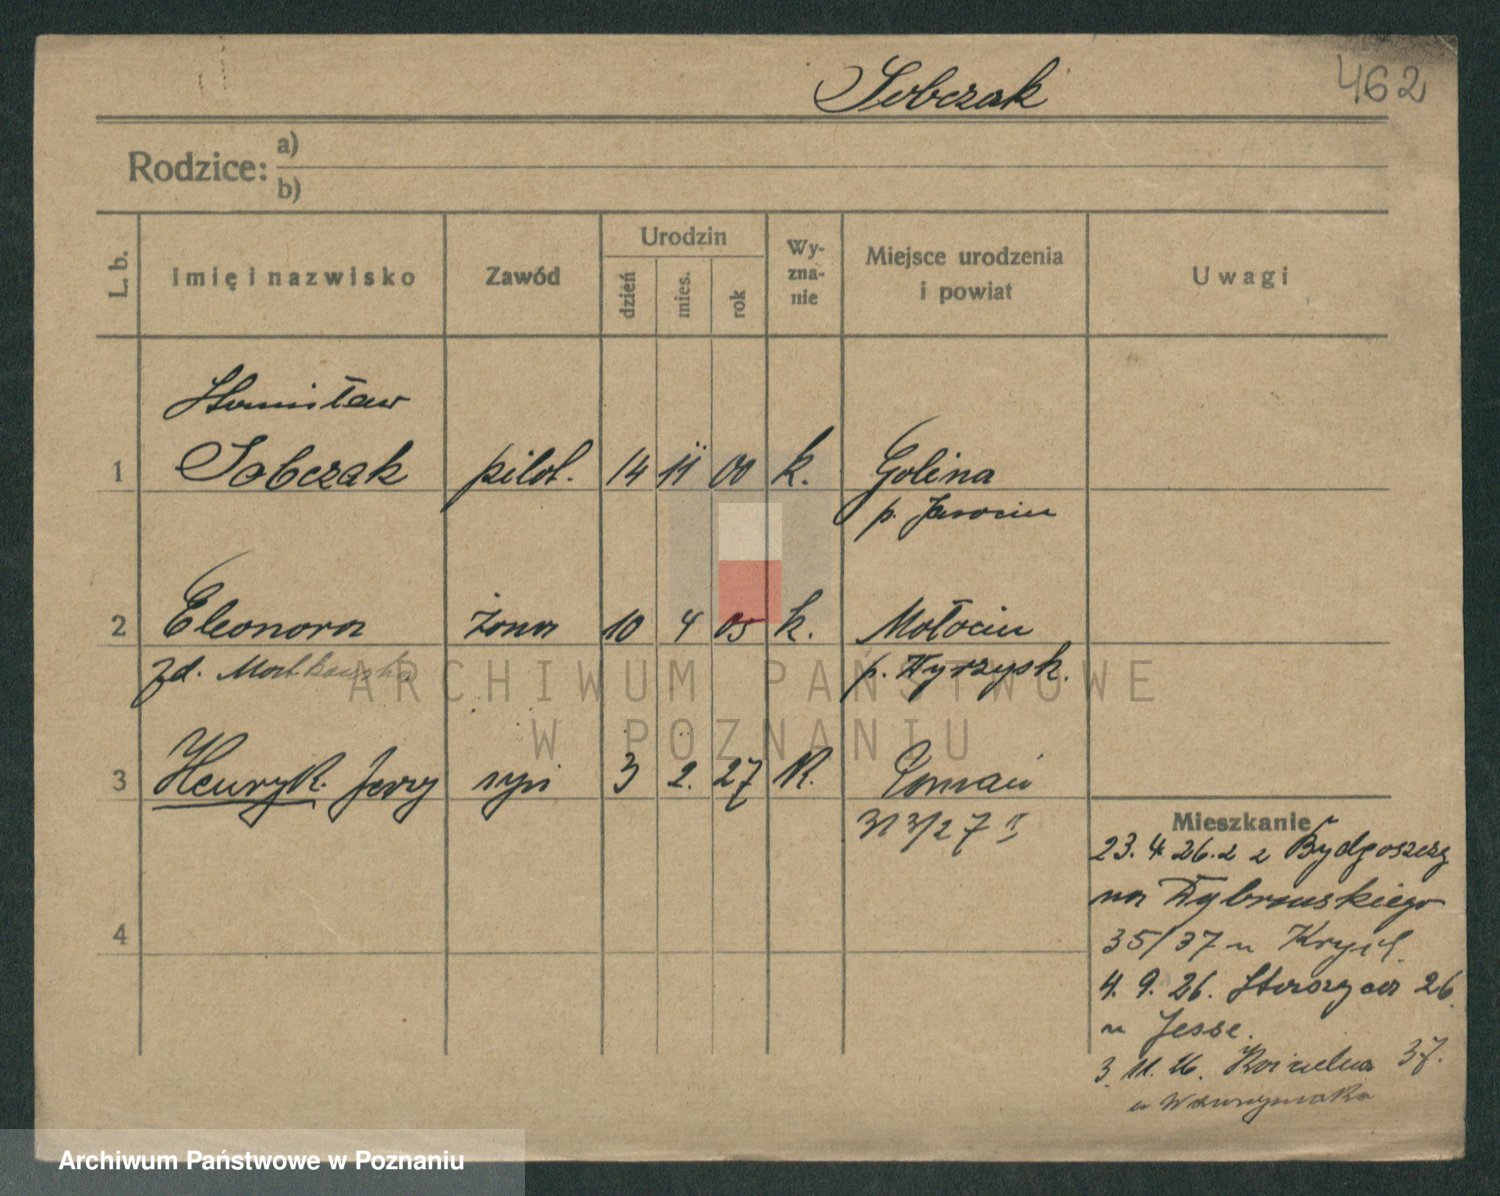 Sobczak 462
Rodzice: a)
b)
L. b. Imię i nazwisko Zawód Urodzin dzień mies. rok Wy-zna-nie Miejsce urodzenia i powiat Uwagi
Stanisław
1 Sobczak pilot. 14 11 00 k. Golina
p. Jarocin
2 Eleonora żona 10 4 05 k.
zd. p. Wyrzysk.
3 Henryk Jerzy syn 3 2. 27 k. Poznań
313/27 II
Mieszkanie
23. 4. 26. z Bydgoszczy
na
35/37 u
4
4. 9. 26. 26.
u Jesse.
3. 11. 26. 37.
u Wawrzyniaka
ARCHIWUM PAŃSTWOWE
W POZNANIU
Archiwum Państwowe w Poznaniu